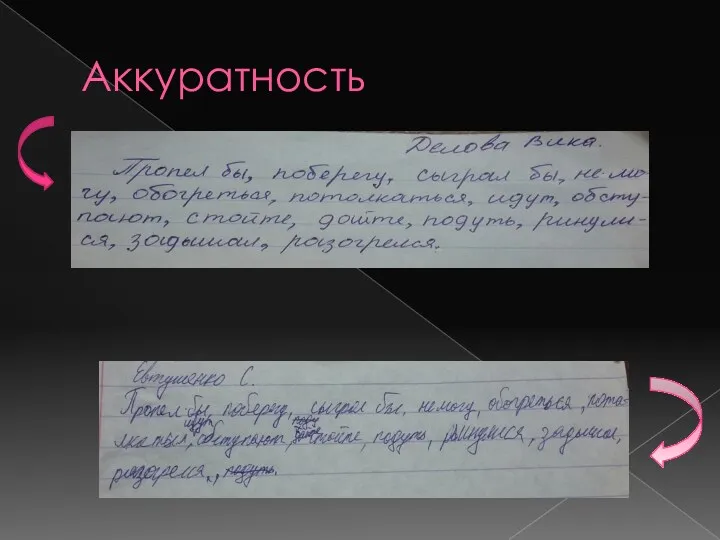 Аккуратность
Делова Вика.
Пропел бы, поберегу, сыграл бы, не мо-
гу, обогреться, потолкаться, идут, обсту-
пают, стойте, дойте, подуть, ринули-
ся, задышал, разогрелся.
Евтушенко С.
Пропел бы, поберегу, сыграл бы, немогу, обогреться, пота-
идут
обступают, стойте, подуть, ринулися, задышал,
разогрелся, подуть.